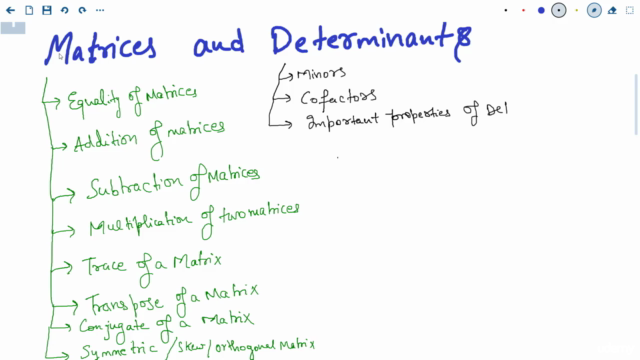 Matrices and Determinants
Equality of Matrices
Addition of matrices
Subtraction of Matrices
Multiplication of two matrices
Trace of a Matrix
Transpose of a Matrix
Conjugate of a Matrix
Symmetric /Skew/orthogonal Matrix
Minors
Cofactors
Important properties of Del